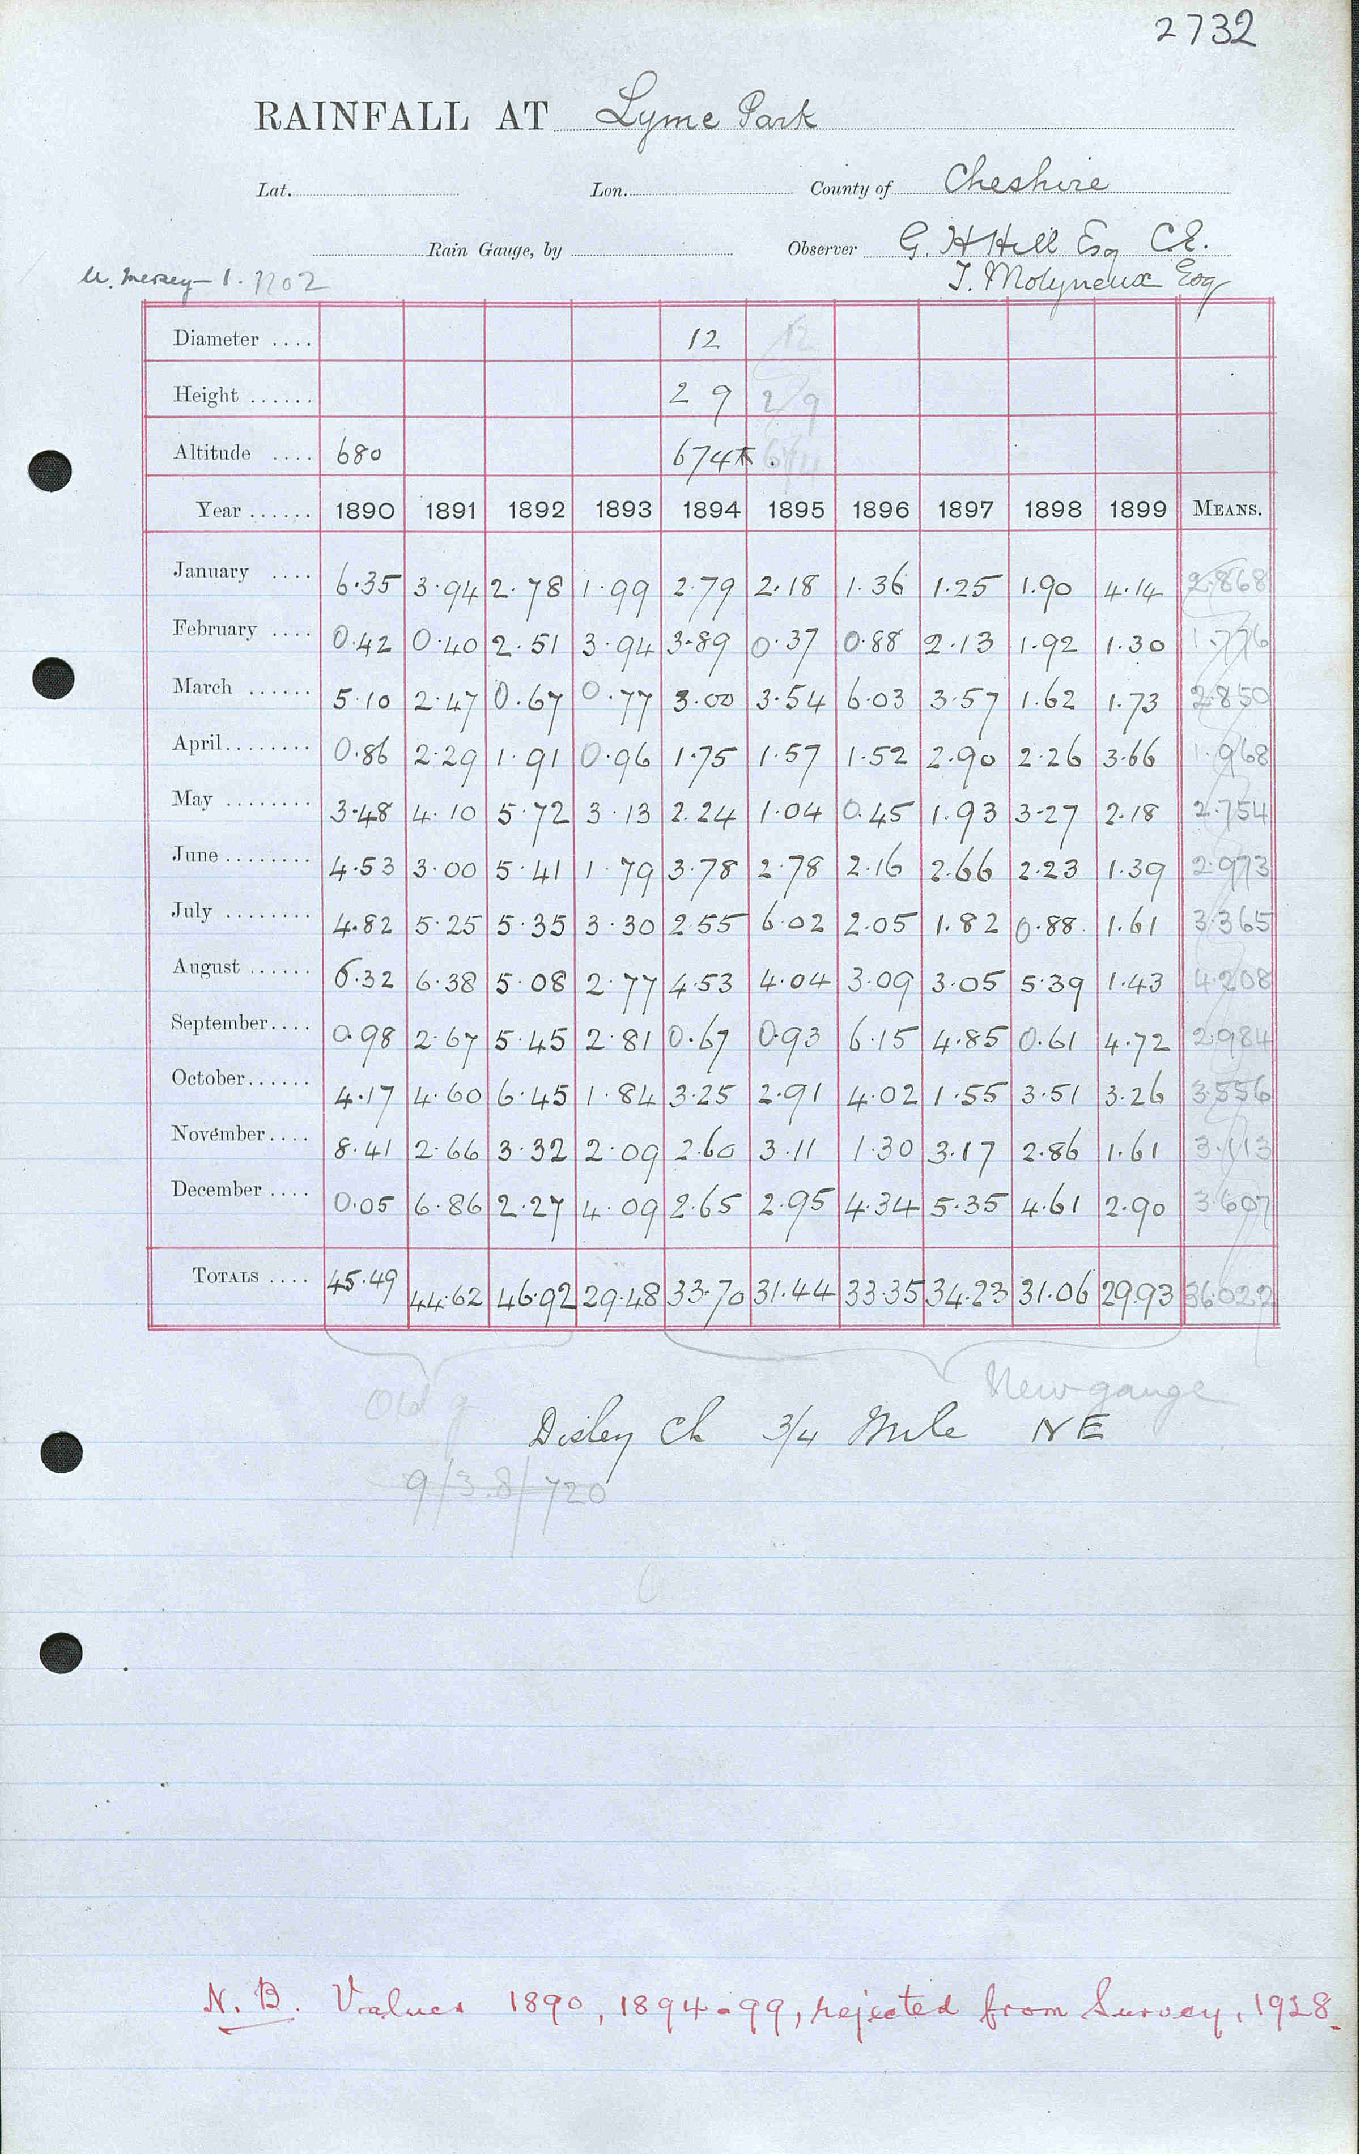 2732
RAINFALL AT Lyme Park
Lat. Lon. County of Cheshire
Rain Gauge, by Observer G. H Hill Esq CE.
U. Mersey - 1. No 2 T. Molyneux Esq
Diameter .... 12 12
Height ...... 2 9 2/9
Altitude .... 680 674 674
Year ...... 1890 1891 1892 1893 1894 1895 1896 1897 1898 1899 MEANS.
January .... 6.35 3.94 2.78 1.99 2.79 2.18 1.36 1.25 1.90 4.14 2.868
February .... 0.42 0.40 2.51 3.94 3.89 0.37 0.88 2.13 1.92 1.30 1.776
March ...... 5.10 2.47 0.67 0.77 3.00 3.54 6.03 3.57 1.62 1.73 2.850
April........ 0.86 2.29 1.91 0.96 1.75 1.57 1.52 2.90 2.26 3.66 1.968
May ........ 3.48 4.10 5.72 3.13 2.24 1.04 0.45 1.93 3.27 2.18 2.754
June ........ 4.53 3.00 5.41 1.79 3.78 2.78 2.16 2.66 2.23 1.39 2.973
July ........ 4.82 5.25 5.35 3.30 2.55 6.02 2.05 1.82 0.88. 1.61 3.365
August ...... 6.32 6.38 5.08 2.77 4.53 4.04 3.09 3.05 5.39 1.43 4.208
September.... 0.98 2.67 5.45 2.81 0.67 0.93 6.15 4.85 0.61 4.72 2.984
October...... 4.17 4.60 6.45 1.84 3.25 2.91 4.02 1.55 3.51 3.26 3.556
November.... 8.41 2.66 3.32 2.09 2.60 3.11 1.30 3.17 2.86 1.61 3.113
December .... 0.05 6.86 2.27 4.09 2.65 2.95 4.34 5.35 4.61 2.90 3.607
TOTALS .... 45.49 44.62 46.92 29.48 33.70 31.44 33.35 34.23 31.06 29.93 36.022
Old g New gauge
Disley Ch 3/4 Mile NE
9/3.8/720
N. B. Values 1890, 1894-99, rejected from Survey, 1928.